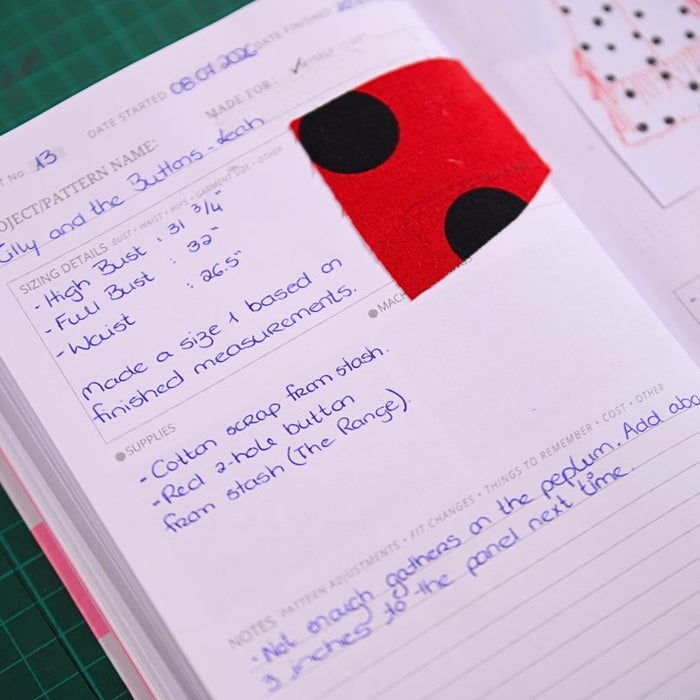 DATE STARTED 08 07 2026 DATE FINISHED
MADE FOR: ✓ MYSELF
T No. 13
OJECT/PATTERN NAME:
Tilly and the Buttons - Leah
SIZING DETAILS BUST • WAIST • HIPS • GARMENT SIZE • OTHER
- High Bust : 31 3/4"
- Full Bust : 32"
- Waist : 26.5"
Made a size 1 based on
finished measurements.
SUPPLIES
MACH
- Cotton scrap from stash.
- Red 2-hole button
from stash (The Range).
NOTES PATTERN ADJUSTMENTS • FIT CHANGES • THINGS TO REMEMBER • COST • OTHER
- Not enough gathers on the peplum. Add abo
3 inches to the panel next time.